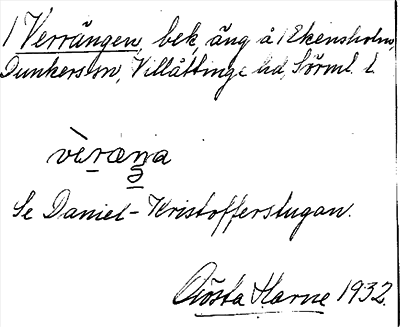 1 Verrängen, bek. äng å 1 Ekensholm,
Dunkers sn, Villåttinge hd, Sörml. l.
vèræŋa
Se Daniel-Kristofferstugan.
Gösta Harne 1932.